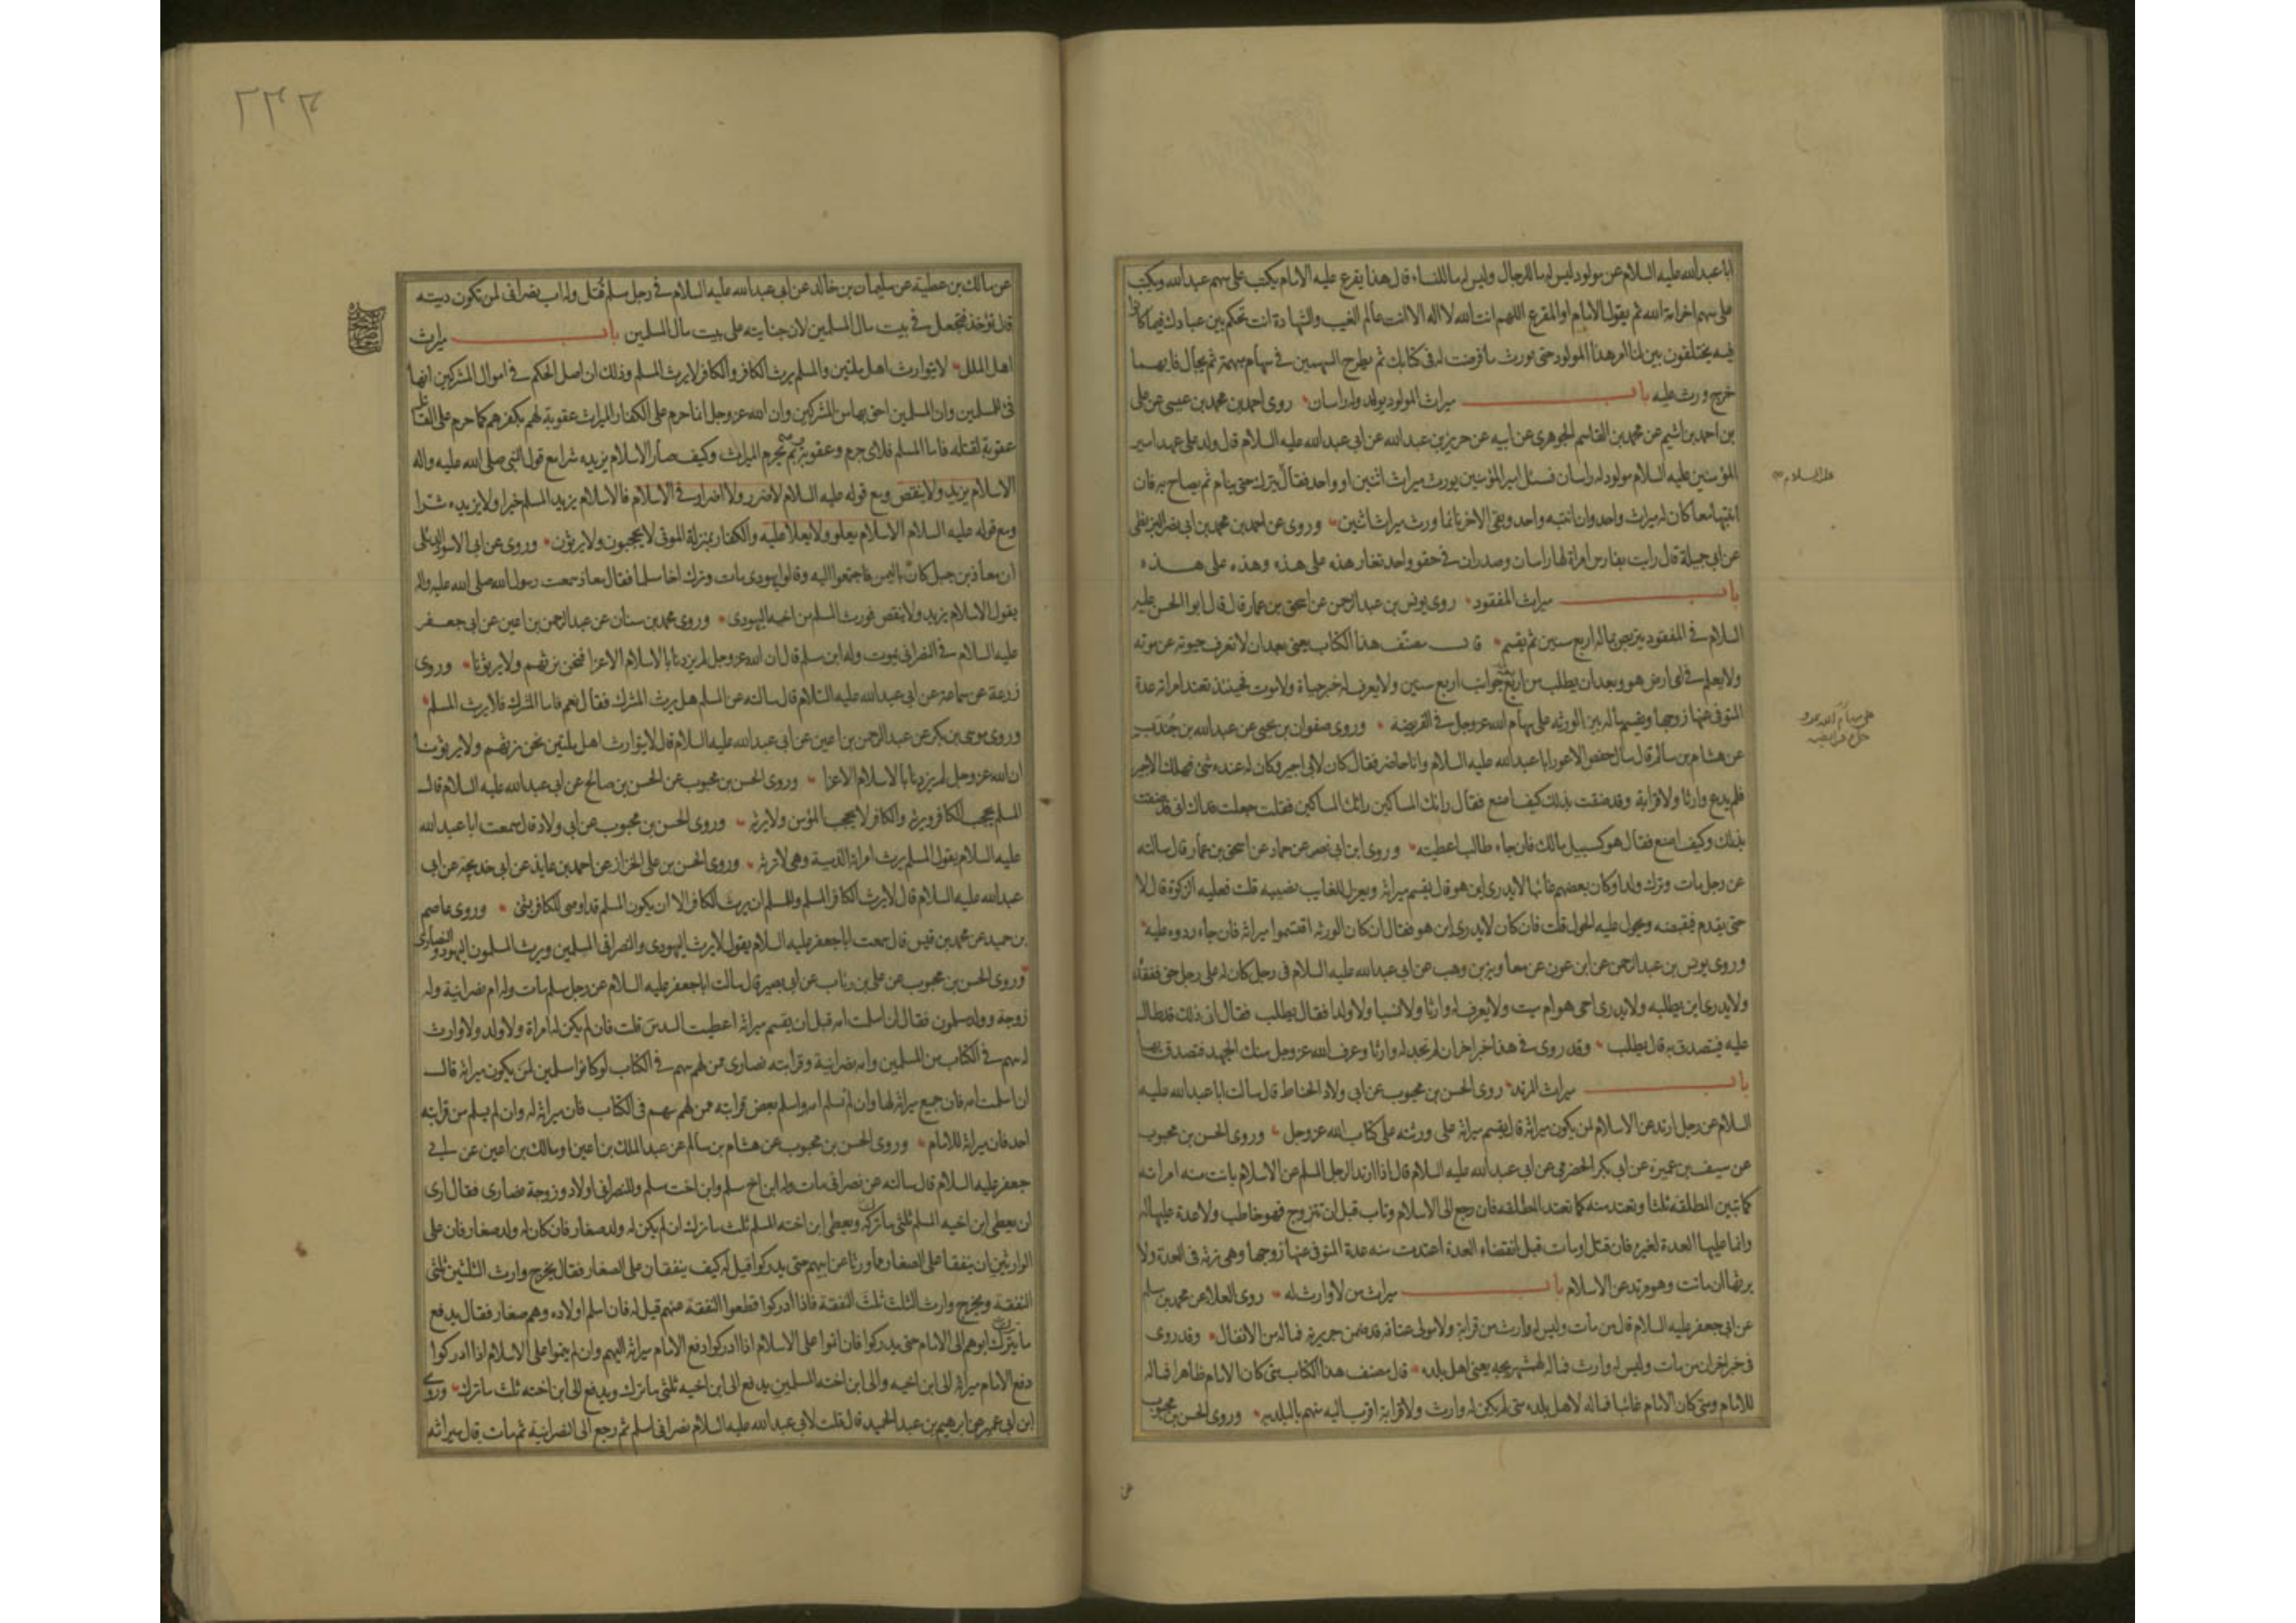 ابا عبدالله عليه السلام عن مولود ليس له ما للرجال وليس له ما للنساء قال هذا يقرع عليه الامام يكتب على سهم عبدالله ويكتب
على سهم اخر امة الله ثم يقول الامام او المقرع اللهم انت الله لا اله الا انت عالم الغيب والشهادة انت تحكم بين عبادك فيما كانوا
فيه يختلفون بين لنا امر هذا المولود حتى يورث ما فرضت له في كتابك ثم يطرح السهمين في سهام مبهمة ثم يجال فايهما
خرج ورث عليه باب ميراث المولود يولد وله راسان روى احمد بن محمد بن عيسى عن على
بن احمد بن اشيم عن محمد بن القاسم الجوهرى عن ابيه عن حريز بن عبدالله عن ابى عبدالله عليه السلام قال ولد على عهد امير
المؤمنين عليه السلام مولود له راسان فسئل امير المؤمنين يورث ميراث اثنين او واحد فقال يترك حتى ينام ثم يصاح به فان
عليه السلام
انتبها معا كان له ميراث واحد وان انتبه واحد وبقى الاخر نائما ورث ميراث اثنين وروى عن احمد بن محمد بن ابى نصر البزنطى
عن ابى جميلة قال رايت بفارس امراة لها راسان وصدران في حقو واحد تغار هذه على هذه وهذه على هذه
باب ميراث المفقود روى يونس بن عبدالرحمن عن اسحق بن عمار قال قال ابوالحسن عليه
السلام في المفقود يتربص بماله اربع سنين ثم يقسم قال مصنف هذا الكتاب يعنى بعد ان لا تعرف حيوته عن موته
ولا يعلم في اى ارض هو وبعد ان يطلب من اربع جوانب اربع سنين ولا يعرف له خبر حياة ولا موت فحينئذ تعتد امراته عدة
المتوفى عنها زوجها ويقسم ماله بين الورثه على سهام الله عز وجل في الفريضة وروى صفوان بن يحيى عن عبدالله بن جندب
عن هشام بن سالم قال سال حفص الاعور ابا عبدالله عليه السلام وانا حاضر فقال كان لابى اجير وكان له عنده شئ فهلك الاجير
فلم يدع وارثا ولا قرابة وقد ضقت بذلك كيف اصنع فقال رابك المساكين رابك المساكين فقلت جعلت فداك انى قد ضقت
بذلك وكيف اصنع فقال هو كسبيل مالك فان جاء طالب اعطيته وروى ابن ابى نصر عن حماد عن اسحق بن عمار قال سالته
عن رجل مات وترك ولدا وكان بعضهم غائبا لا يدرى اين هو قال يقسم ميراثه ويعزل للغايب نصيبه قلت فعليه الزكوة قال لا
حتى يقدم فيقبضه ويحول عليه الحول قلت فان كان لا يدرى اين هو فقال ان كان الورثه اقتسموا ميراثه فان جاء ردوه عليه
وروى يونس بن عبدالرحمن عن ابن عون عن معاوية بن وهب عن ابى عبدالله عليه السلام في رجل كان له على رجل حق ففقده
ولا يدرى اين يطلبه ولا يدرى احى هو ام ميت ولا يعرف له وارثا ولا نسبا ولا ولدا فقال يطلب فقال ان ذلك قد طال
عليه فيتصدق به قال يطلب وقد روى في هذا خبر اخر ان لم تجد له وارثا وعرف الله عز وجل منك الجهد فتصدق بها
باب ميراث المرتد روى الحسن بن محبوب عن ابى ولاد الحناط قال سالت ابا عبدالله عليه
السلام عن رجل ارتد عن الاسلام لمن يكون ميراثه قال يقسم ميراثه على ورثته على كتاب الله عز وجل وروى الحسن بن محبوب
عن سيف بن عميرة عن ابى بكر الحضرمى عن ابى عبدالله عليه السلام قال اذا ارتد الرجل المسلم عن الاسلام بانت منه امراته
كما تبين المطلقه ثلثا وتعتد منه كما تعتد المطلقه فان رجع الى الاسلام وتاب قبل ان تتزوج فهو خاطب ولا عدة عليها له
وانما عليها العدة لغيره فان قتل او مات قبل انقضاء العدة اعتدت منه عدة المتوفى عنها زوجها وهى ترثه في العدة ولا
يرثها ان ماتت وهو مرتد عن الاسلام باب ميراث من لا وارث له روى العلاء عن محمد بن مسلم
عن ابى جعفر عليه السلام قال من مات وليس له وارث من قرابة ولا مولى عتاقه قد ضمن جريرته فماله من الانفال وقد روى
في خبر اخر ان من مات وليس له وارث فماله لهمشهريجه يعنى اهل بلده قال مصنف هذا الكتاب متى كان الامام ظاهرا فماله
للامام ومتى كان الامام غائبا فماله لاهل بلده متى لم يكن له وارث ولا قرابة اقرب اليه منهم بالبلديه وروى الحسن بن محبوب
عن
٢٢٦
عن مالك بن عطية عن سليمان بن خالد عن ابى عبدالله عليه السلام في رجل مسلم قتل وله اب نصرانى لمن تكون ديته
قال تؤخذ فتجعل في بيت مال المسلمين لان جنايته على بيت مال المسلمين باب ميراث
اهل الملل لا يتوارث اهل ملتين والمسلم يرث الكافر والكافر لا يرث المسلم وذلك ان اصل الحكم في اموال المشركين انها
فئ للمسلمين وان المسلمين احق بها من المشركين وان الله عز وجل انما حرم على الكفار الميراث عقوبة لهم بكفرهم كما حرم على القاتل
عقوبة لقتله فاما المسلم فلاى جرم وعقوبة يحرم الميراث وكيف صار الاسلام يزيده شرا مع قول النبى صلى الله عليه واله
الاسلام يزيد ولا ينقص ومع قوله عليه السلام لا ضرر ولا اضرار في الاسلام فالاسلام يزيد المسلم خيرا ولا يزيده شرا
ومع قوله عليه السلام الاسلام يعلو ولا يعلا عليه والكفار بمنزلة الموتى لا يحجبون ولا يرثون وروى عن ابى الاسود الدئلى
ان معاذ بن جبل كان باليمن فاجتمعوا اليه وقالوا يهودى مات وترك اخا مسلما فقال معاذ سمعت رسول الله صلى الله عليه واله
يقول الاسلام يزيد ولا ينقص فورث المسلم من اخيه اليهودى وروى محمد بن سنان عن عبدالرحمن بن اعين عن ابى جعفر
عليه السلام في النصرانى يموت وله ابن مسلم قال ان الله عز وجل لم يزدنا بالاسلام الا عزا فنحن نرثهم ولا يرثونا وروى
زرعة عن سماعة عن ابى عبدالله عليه السلام قال سالته عن المسلم هل يرث المشرك فقال نعم فاما المشرك فلا يرث المسلم
وروى موسى بن بكر عن عبدالرحمن بن اعين عن ابى عبدالله عليه السلام قال لا يتوارث اهل ملتين نحن نرثهم ولا يرثونا
ان الله عز وجل لم يزدنا بالاسلام الا عزا وروى الحسن بن محبوب عن الحسن بن صالح عن ابى عبدالله عليه السلام قال
المسلم يحجب الكافر ويرثه والكافر لا يحجب المؤمن ولا يرثه وروى الحسن بن محبوب عن ابى ولاد قال سمعت ابا عبدالله
عليه السلام يقول المسلم يرث امراته الذمية وهى لا ترثه وروى الحسن بن على الخزاز عن احمد بن عايذ عن ابى خديجة عن ابى
عبدالله عليه السلام قال لا يرث الكافر المسلم وللمسلم ان يرث الكافر الا ان يكون المسلم قد اوصى للكافر بشئ وروى عاصم
بن حميد عن محمد بن قيس قال سمعت ابا جعفر عليه السلام يقول لا يرث اليهودى والنصرانى المسلمين ويرث المسلمون اليهود والنصارى
وروى الحسن بن محبوب عن على بن رئاب عن ابى بصير قال سالت ابا جعفر عليه السلام عن رجل مسلم مات وله ام نصرانية وله
زوجة وولد مسلمون فقال ان اسلمت امه قبل ان يقسم ميراثه اعطيت السدس قلت فان لم يكن له امراة ولا ولد ولا وارث
له سهم في الكتاب من المسلمين وامه نصرانية وقرابته نصارى ممن لهم سهم في الكتاب لو كانوا مسلمين لمن يكون ميراثه قال
ان اسلمت امه فان جميع ميراثه لها وان لم تسلم امه واسلم بعض قرابته ممن لهم سهم في الكتاب فان ميراثه له وان لم يسلم من قرابته
احد فان ميراثه للامام وروى الحسن بن محبوب عن هشام بن سالم عن عبدالملك بن اعين او مالك بن اعين عن ابى
جعفر عليه السلام قال سالته عن نصرانى مات وله ابن اخ مسلم وابن اخت مسلم وللنصرانى اولاد وزوجة نصارى فقال ارى
ان يعطى ابن اخيه المسلم ثلثى ما تركه ويعطى ابن اخته المسلم ثلث ما ترك ان لم يكن له ولد صغار فان كان له ولد صغار فان على
الوارثين ان ينفقا على الصغار مما ورثا عن ابيهم حتى يدركوا قيل له كيف ينفقان على الصغار فقال يخرج وارث الثلثين ثلثى
النفقة ويخرج وارث الثلث ثلث النفقة فاذا ادركوا قطعوا النفقة عنهم قيل له فان اسلم اولاده وهم صغار فقال يدفع
ما يترك ابوهم الى الامام حتى يدركوا فان اتموا على الاسلام اذا ادركوا دفع الامام ميراثه اليهم وان لم يتموا على الاسلام اذا ادركوا
دفع الامام ميراثه الى ابن اخيه والى ابن اخته المسلمين يدفع الى ابن اخيه ثلثى ما ترك ويدفع الى ابن اخته ثلث ما ترك وروى
ابن ابى عمير عن ابرهيم بن عبدالحميد قال قلت لابى عبدالله عليه السلام نصرانى اسلم ثم رجع الى النصرانية ثم مات قال ميراثه